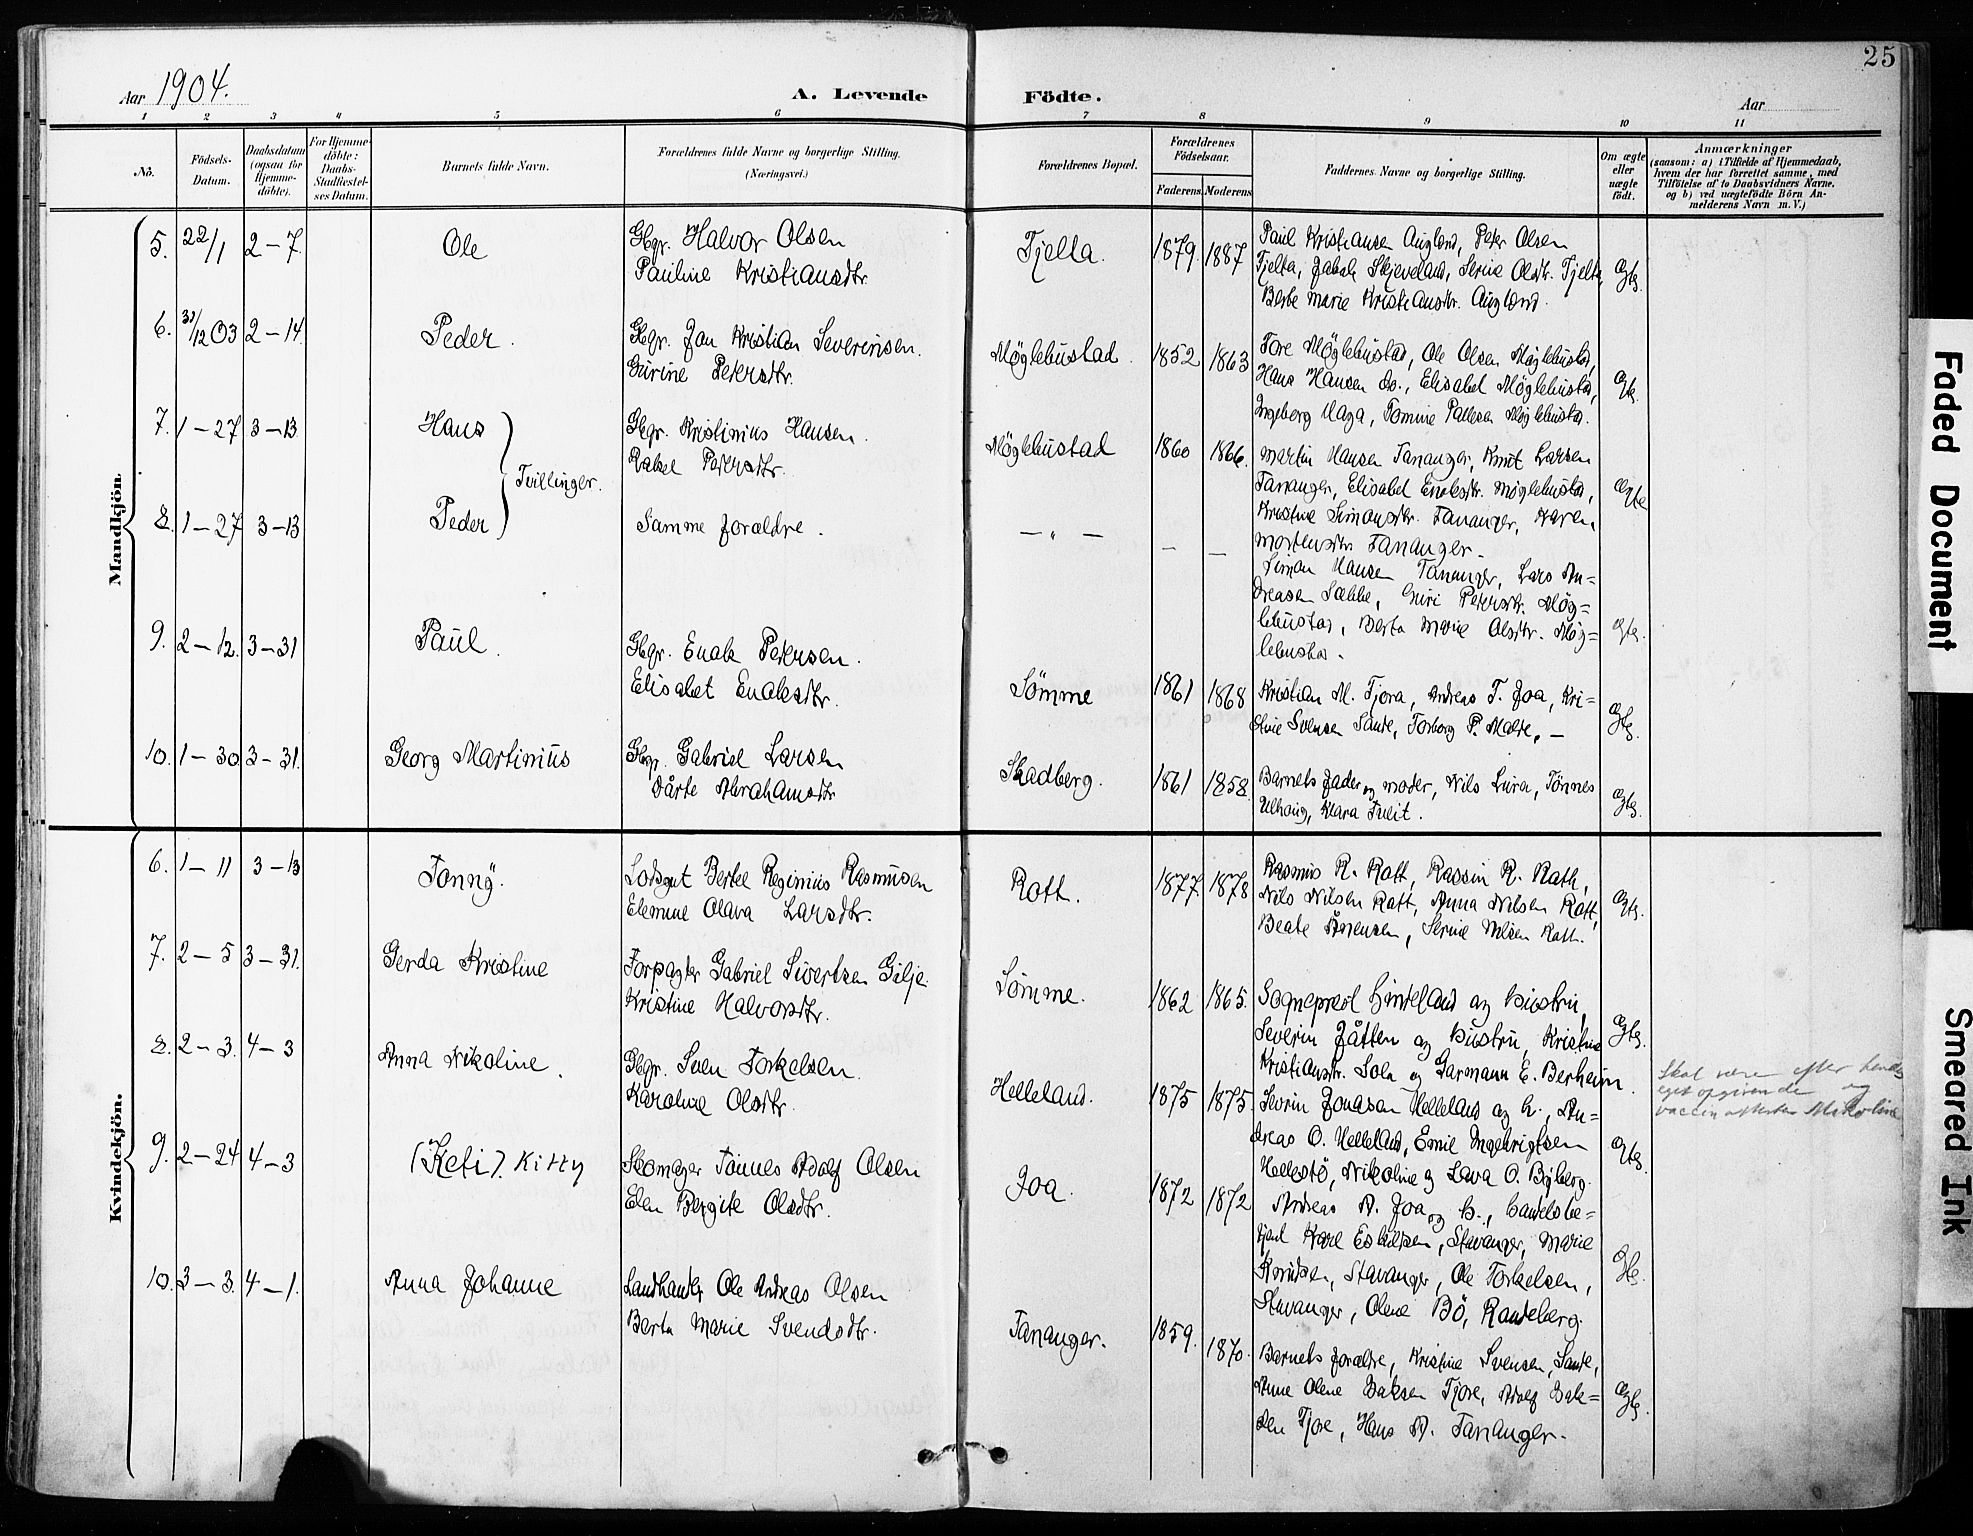 25
Aar 1904.
A. Levende Fødte.
Aar
1 2 3 4 5 6 7 8 9 10 11
No.
Födsels-Datum.
Daabsdatum (ogsaa for Hjemme-döbte).
For Hjemme-döbte: Daabs-Stadfæstel-ses Datum.
Barnets fulde Navn.
Forældrenes fulde Navne og borgerlige Stilling. (Næringsvei.)
Forældrenes Bopæl.
Forældrenes Födselsaar.
Faderens Moderens
Faddernes Navne og borgerlige Stilling.
Om ægte eller uægte födt.
Anmærkninger
(saasom: a) i Tilfælde af Hjemmedaab,
hvem der har forrettet samme, med
Tilföielse af to Daabsvidners Navne,
og b) ved uægtefödte Börn An-
melderens Navn m. V.)
Mandkjön.
5. 22/1 2-7. Ole
Gbgr. Halvor Olsen
Pauline Kristiansdtr.
Tjelta. 1879. 1887
Paul Kristiansen Augland, Peter Olsen
Tjelta, Jakob Skjeveland, Serine Olsdtr. Tjelta,
Berte Marie Kristiansdtr. Augland.
Ægte.
6. 31/12 03 2-14. Peder.
Gbgr. Jan Kristian Severinsen.
Gurine Petersdtr.
Møglebustad. 1852 1863
Tore Møglebustad, Ole Olsen Møglebustad,
Hans Hansen do., Elisabet Møglebustad,
Ingeborg Haga, Tomine Pallesen Møglebustad.
Ægte.
7. 1-27 3-13. Hans
Tvillinger.
Gbgr. Kristinius Hansen.
Rakel Petersdtr.
Møglebustad 1860 1866.
Martin Hansen Tananger, Knut Larsen
Tananger, Elisabet Enoksdtr. Møglebustad,
Kristine Simonsdtr. Tananger, Karen
Mortensdtr Tananger.
Ægte
8. 1-27 3-13 Peder
Samme forældre.
— " — — —
Simon Hansen Tananger, Lars An=
dreasen Sække, Guri Petersdtr. Møg=
lebustad, Berta Marie Olsdtr. Møg=
lebustad.
Ægte.
9. 2-12. 3-31 Paul.
Gbgr. Enok Petersen.
Elisabet Enoksdtr.
Sømme 1861 1868
Kristian M. Tjora, Andreas T. Joa, Kri=
stine Svensen Sande, Torborg P. Malde, —
Ægte.
10. 1-30 3-31. Georg Martinius
Gbgr. Gabriel Larsen
Dårte Abrahamsdtr
Skadberg. 1861 1858.
Barnets fader og moder, Nils Lura, Tønnes
Ulhaug, Klara Tulit.
Ægte.
Kvindekjön.
6. 1-11 3-13 Fanny.
Lodsgut Bertel Reginius Rasmusen
Elemine Olava Larsdtr.
Rott. 1877. 1878
Rasmus R. Rott, Rassin R. Roth,
Nils Nilsen Rott, Anna Nilsen Rott,
Beate Sørensen, Serine Nilsen Rott.
Ægte.
7. 2-5 3-31. Gerda Kristine
Forpagter Gabriel Sivertsen Gilje
Kristine Halvorsdtr.
Sømme. 1862 1865.
Sogneprest Hinteland og hustru,
Severin Jåtten og hustru, Kristine
Kristiansdtr. Sola og Garmann E. Berheim.
Ægte.
8. 2-3. 4-3 Anna Nikoline.
Gbgr. Sven Torkelsen.
Karoline Olsdtr.
Helleland. 1875 1875.
Sevrin Jonasen Helleland og h., An=
dreas O. Helleland, Emil Ingebrigtsen
Hellestø, Nikoline og Lava O. Byberg.
Ægte.
Skal være efter hendes
eget opgivende og
vaccinattesten Mikoline
9. 2-24 4-3 (Keti). Kitty
Skomager Tønnes Adolf Olsen
Elen Bergite Olsdtr.
Joa. 1872 1872
Andreas A. Joa og h., handelsbe=
tjent Karl Eskildsen, Stavanger, Marie
Knudsen, Stavanger, Ole Torkelsen,
Stavanger, Olene Bø, Randeberg.
Ægte.
10. 3-3. 4-1. Anna Johanne
Landhandler Ole Andreas Olsen
Berta Marie Svendsdtr.
Tananger. 1859. 1870.
Barnets forældre, Kristine Svensen, Sande,
Anne Olene Baksen Tjore, Adolf Bak=
sen Tjore, Hans A. Tananger.
Ægte.
Faded Document
Smeared Ink